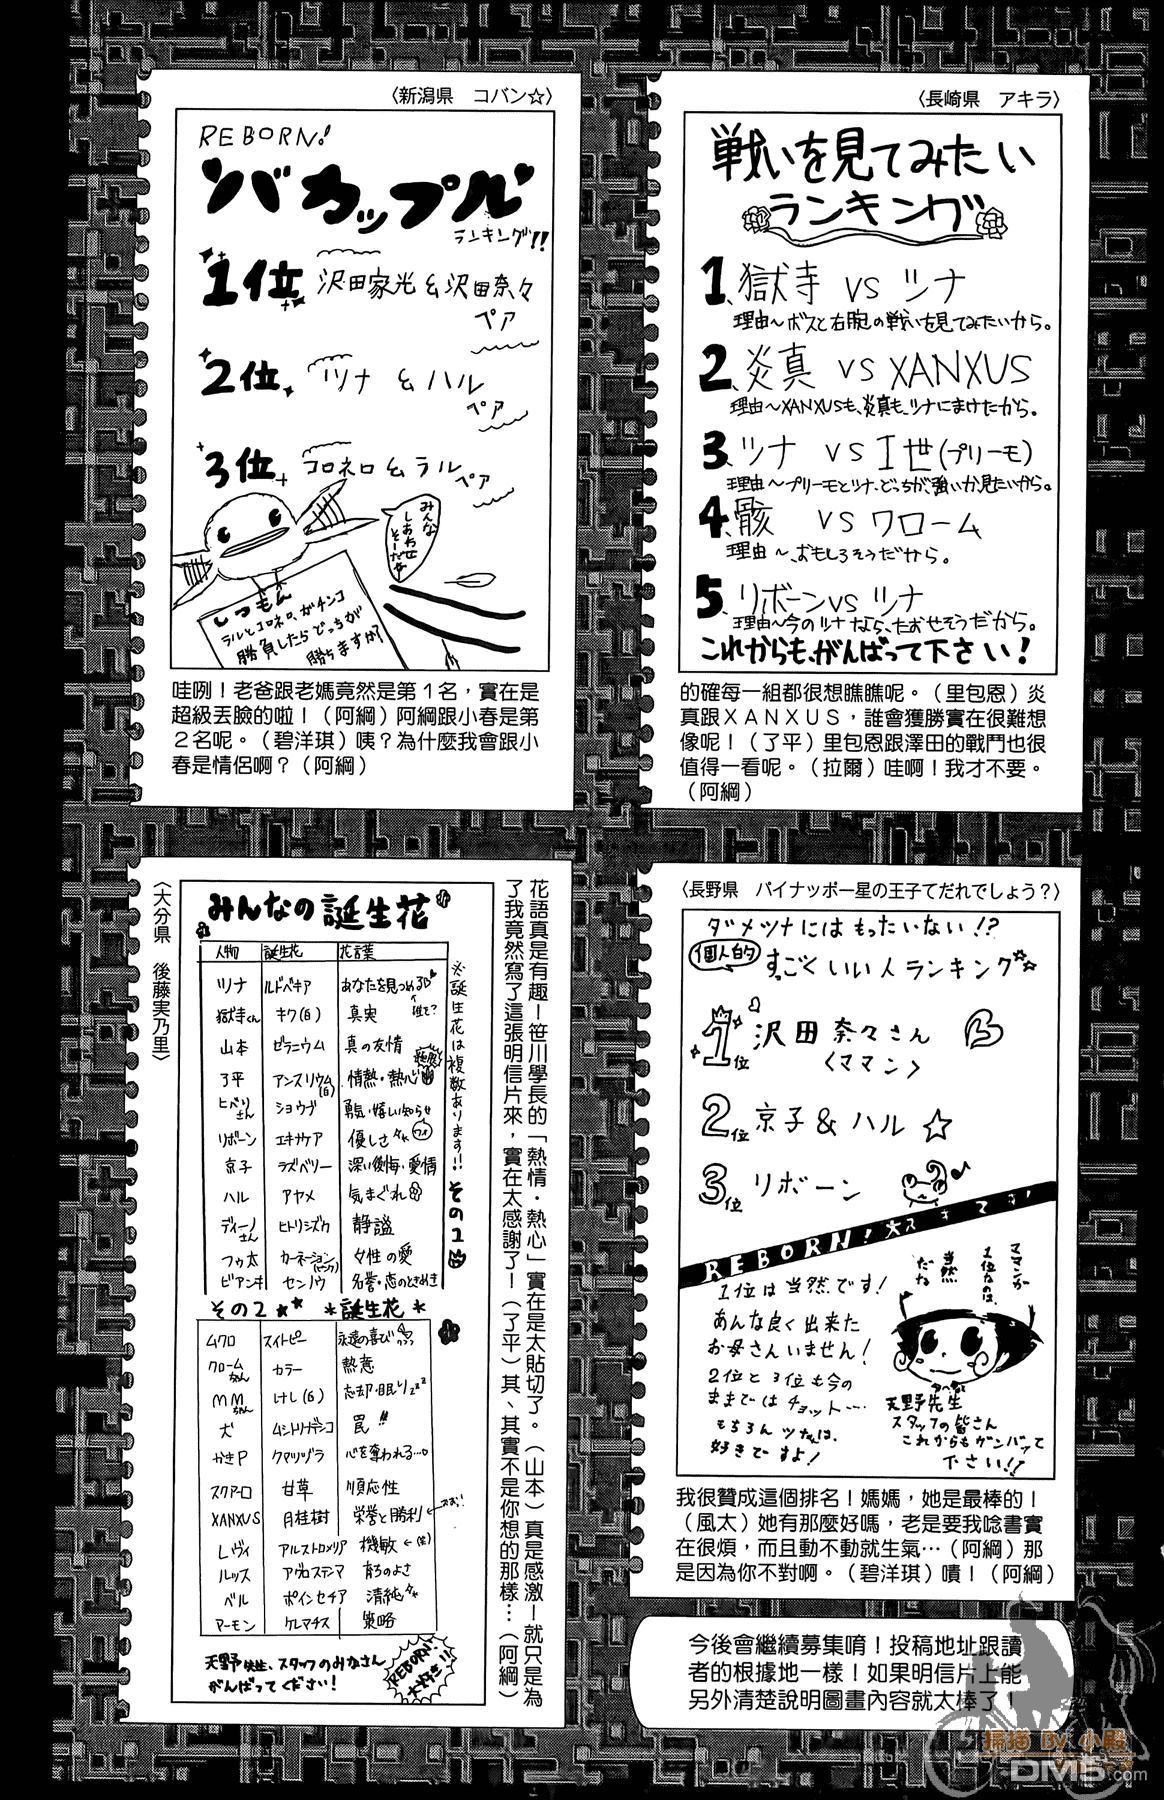 〈長崎県　アキラ〉
戦いを見てみたい
ランキング
1、獄寺 VS ツナ
理由～ボスと右腕の戦いを見てみたいから。
2、炎真 VS XANXUS
理由～XANXUSも、炎真も、ツナにまけたから。
3、ツナ VS Ⅰ世(プリーモ)
理由～プリーモとツナ、どっちが、強いか見たいから。
4、骸 VS クローム
理由～、おもしろそうだから。
5、リボーン VS ツナ
理由～今のツナなら、たおせそうだから。
これからも、がんばって下さい!
的確每一組都很想瞧瞧呢。（里包恩）炎
真跟ＸＡＮＸＵＳ，誰會獲勝實在很難想
像呢！（了平）里包恩跟澤田的戰鬥也很
值得一看呢。（拉爾）哇啊！我才不要。
（阿綱）
〈新潟県　コバン☆〉
REBORN!
バカップル
ランキング!!
1位 沢田家光&沢田奈々
ペア
2位 ツナ & ハル
ペア
3位 コロネロ & ラル
ペア
みんな
しあわせ
そーだネ
しつもん
ラルとコロネロ、ガチンコ
勝負したらどっちが
勝ちますか?
哇咧！老爸跟老媽竟然是第１名，實在是
超級丟臉的啦！（阿綱）阿綱跟小春是第
２名呢。（碧洋琪）咦？為什麼我會跟小
春是情侶啊？（阿綱）
〈長野県　パイナッポー星の王子てだれでしょう？〉
ダメツナにはもったいない!?
個人的 すっごくいい人ランキング☆
1位 沢田奈々さん
〈ママン〉
2位 京子 & ハル ☆
3位 リボーン ♪
REBORN!大スキです!
1位は当然です!
あんな良く出来た
お母さんいません!
2位と3位も今の
ままではチョット…
もちろんツナは、
好きですよ!
ママンが
1位なのは、
当然
だな
天野先生
スタッフの皆さん
これからもガンバッて
下さい!!
我很贊成這個排名！媽媽，她是最棒的！
（風太）她有那麼好嗎，老是要我唸書實
在很煩，而且動不動就生氣…（阿綱）那
是因為你不對啊。（碧洋琪）嘖！（阿綱）
花語真是有趣！笹川學長的「熱情・熱心」實在是太貼切了。（山本）真是感激！就只是為
了我竟然寫了這張明信片來，實在太感謝了！（了平）其、其實不是你想的那樣…（阿綱）
みんなの誕生花
※誕生花は複数あります!! その1
人物 誕生花 花言葉
ツナ ルドベキア あなたを見つめる
獄寺くん キク(白) 真実
山本 ゼラニウム 真の友情
了平 アンスリウム(白) 情熱・熱心
ヒバリさん ショウブ 勇気・嬉しい知らせ
リボーン エキナケア 優しさ
京子 ラズベリー 深い後悔・愛情
ハル アヤメ 気まぐれ
ディーノさん ヒトリシズカ 静謐
フゥ太 カーネーション(ピンク) 女性の愛
ビアンキ センノウ 名誉・恋のときめき
その2 ＊誕生花＊
ムクロ スイトピー 永遠の喜び
クロームちゃん カラー 熱意
MMちゃん けし(白) 忘却・眠りzzz
犬 ムシトリナデシコ 罠!!
かきP クマツヅラ 心を奪われる…
スクアーロ 甘草 順応性
XANXUS 月桂樹 栄誉と勝利
レヴィ アルストロメリア 機敏
ルッス アヴェステマ 育ちのよさ
ベル ポインセチア 清純
マーモン クレマチス 策略
天野先生、スタッフのみなさん
がんばってください!
REBORN!
大好き!!
〈大分県　後藤実乃里〉
今後會繼續募集唷！投稿地址跟讀
者的根據地一樣！如果明信片上能
另外清楚說明圖畫內容就太棒了！
掃描 BY 小駒
DM5.com